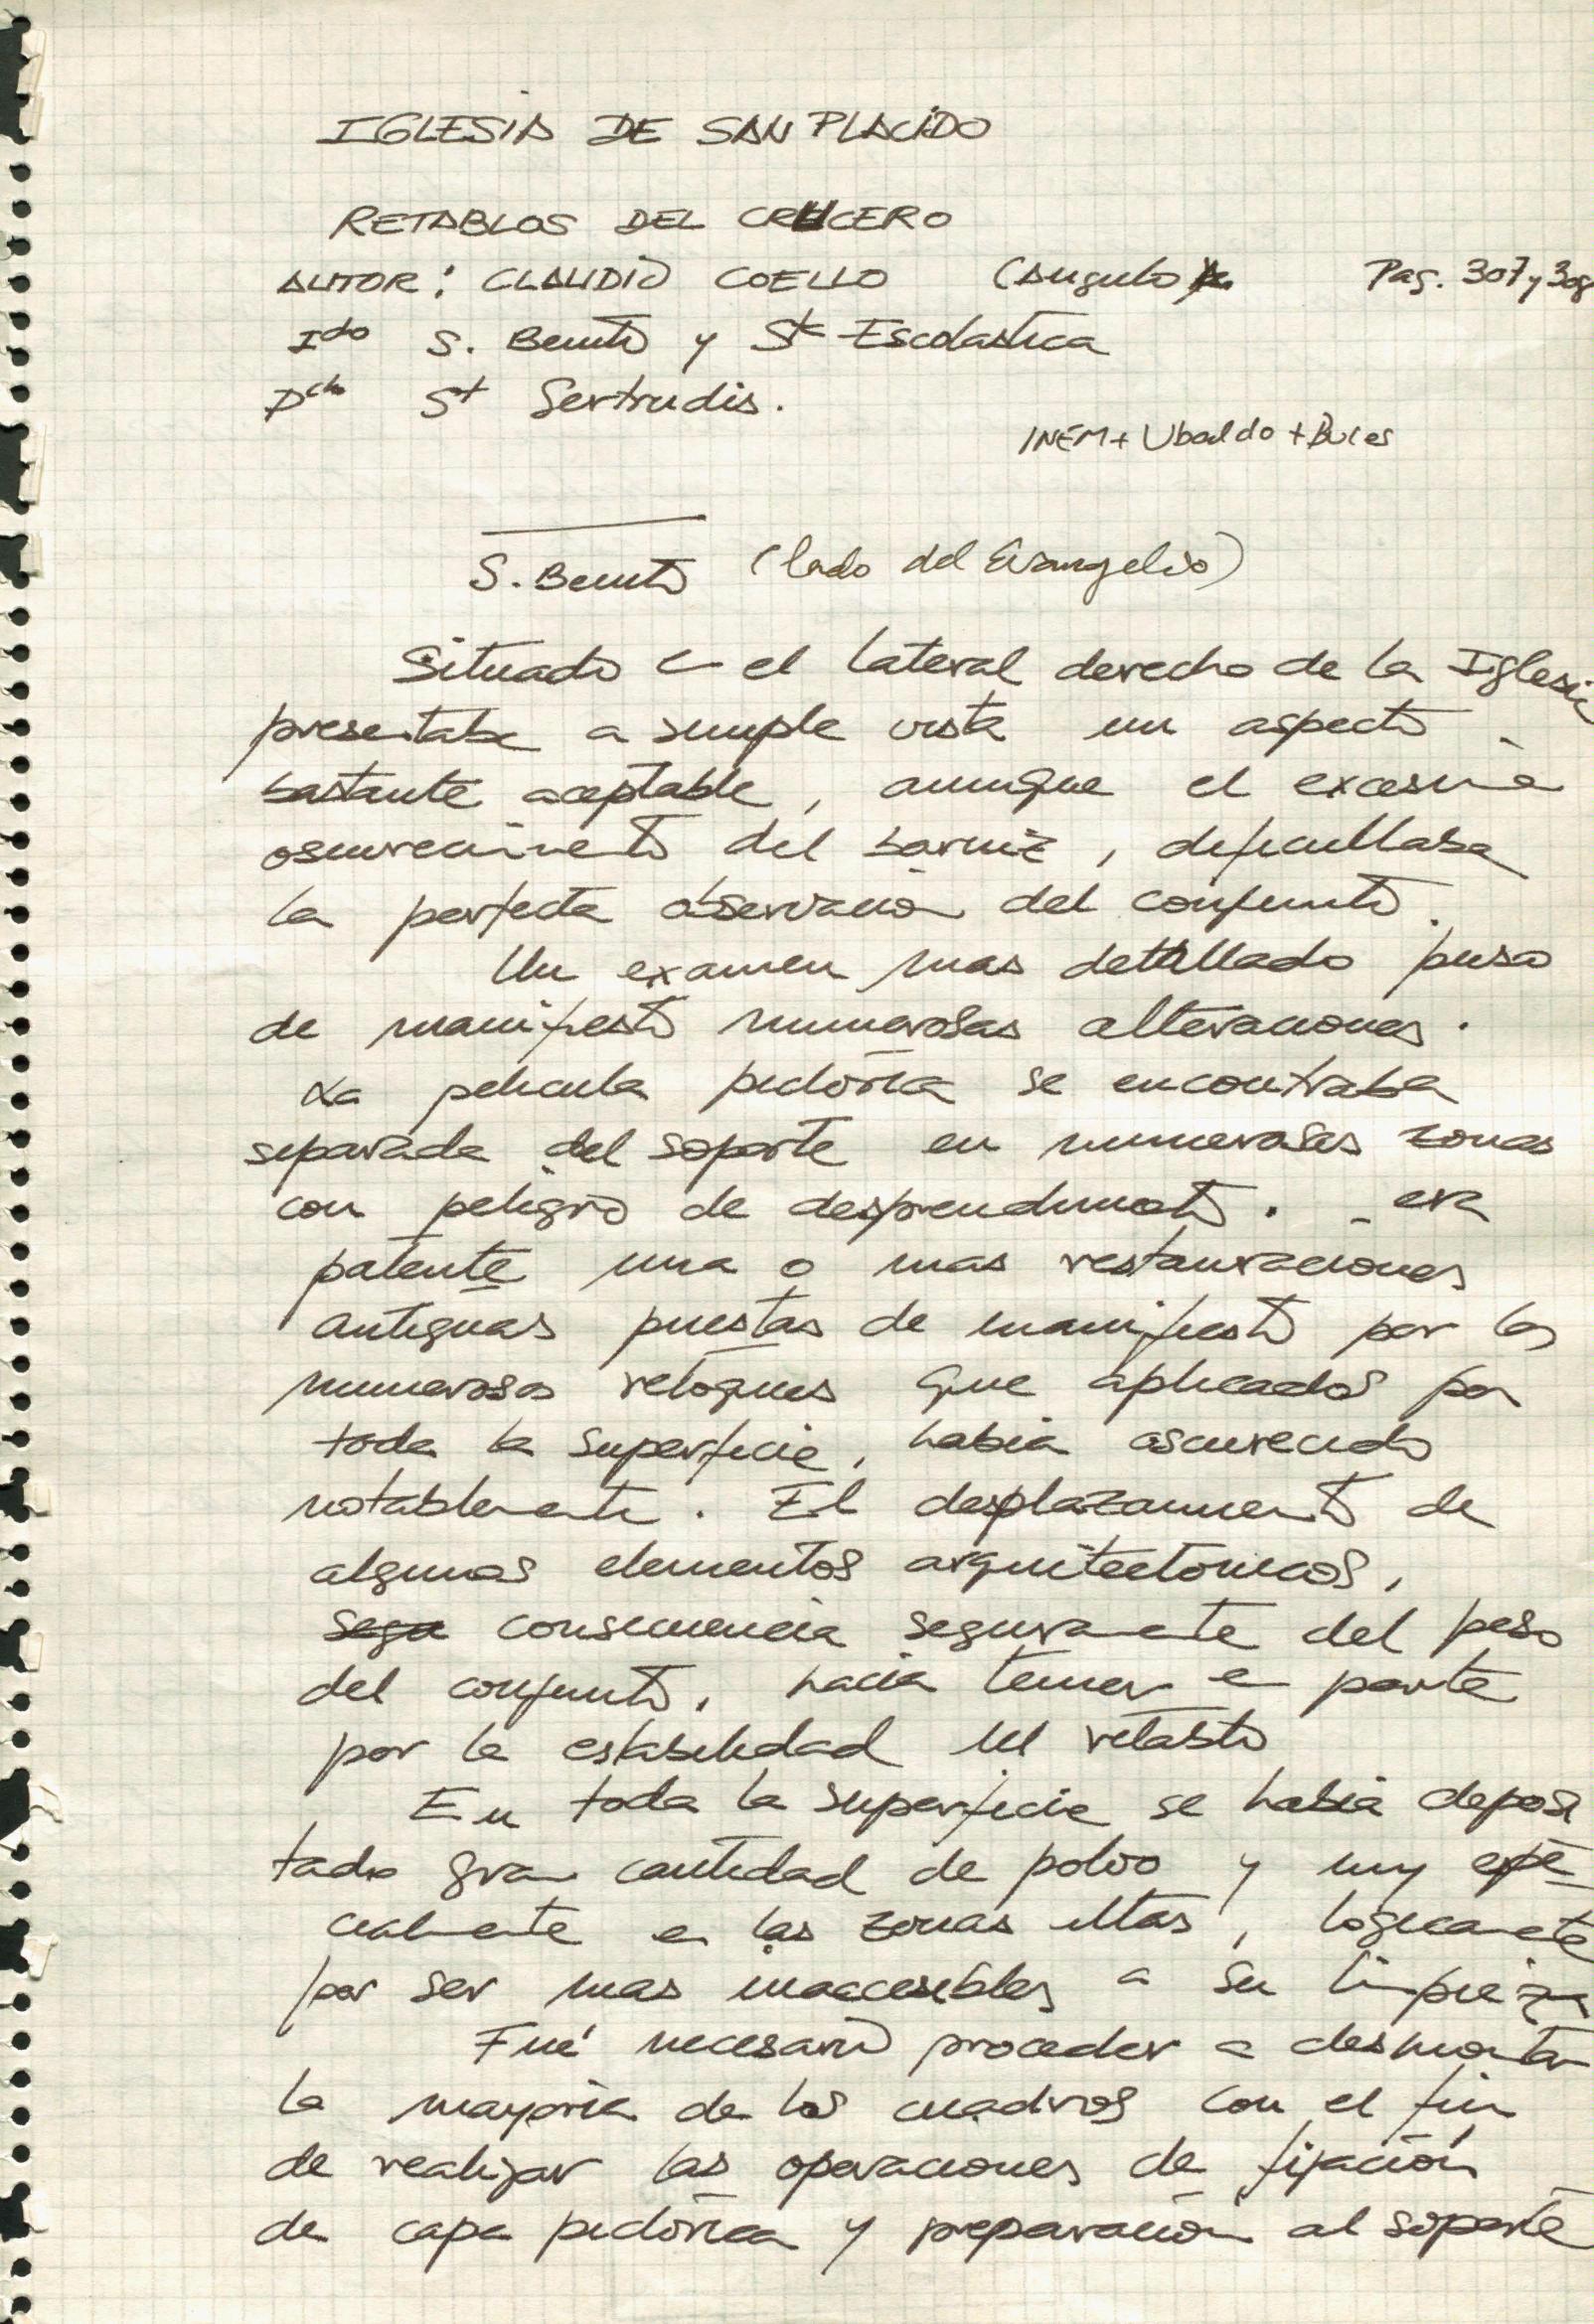 IGLESIA DE SAN PLACIDO
RETABLOS DEL CRUCERO
AUTOR: CLAUDIO COELLO (Angulo Pag. 307 y 308
Ido S. Benito y Sta Escolastica
Dcho St Gertrudis.
INEM + Ubaldo + Bures
S. Benito (lado del Evangelio)
Situado en el lateral derecho de la Iglesia
presentaba a simple vista un aspecto
bastante aceptable, aunque el excesivo
oscurecimiento del barniz, dificultaba
la perfecta observación del conjunto.
Un examen mas detallado puso
de manifiesto numerosas alteraciones.
La pelicula pictórica se encontraba
separada del soporte en numerosas zonas
con peligro de desprendimiento. era
patente una o mas restauraciones
antiguas puestas de manifiesto por los
numerosos retoques que aplicados por
toda la superficie, habia oscurecido
notablemente. El desplazamiento de
algunos elementos arquitectonicos,
consecuencia seguramente del peso
del conjunto, hacia temer en parte
por la estabilidad del retablo
En toda la superficie se habia deposi
tado gran cantidad de polvo y muy espe-
cialmente en las zonas altas, logicamente
por ser mas inaccesibles a su limpieza
Fué necesario proceder a desmontar
la mayoria de los cuadros con el fin
de realizar las operaciones de fijación
de capa pictórica y preparación al soporte